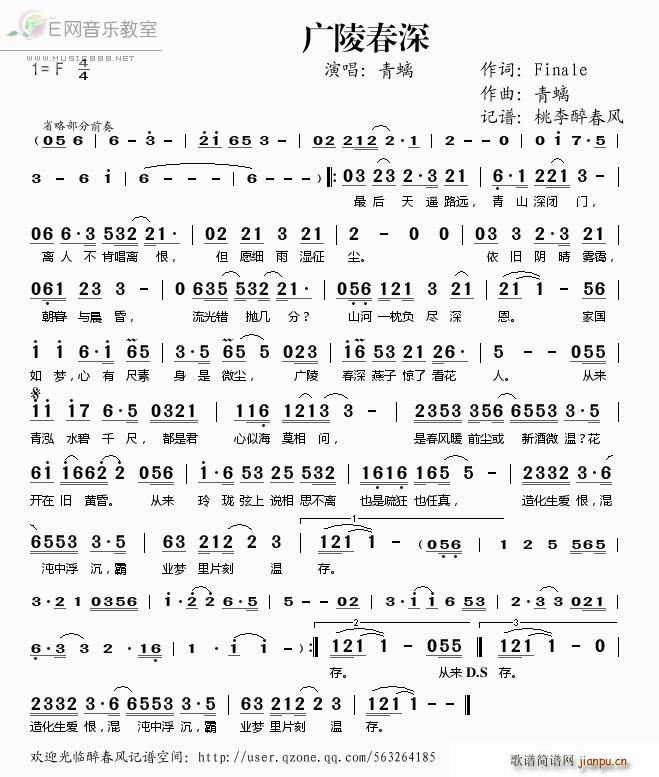 E网音乐教室
WWW.MUSIC8888.NET
广陵春深
1=F 4/4
演唱：青螭
作词：Finale
作曲：青螭
记谱：桃李醉春风
省略部分前奏
(056 | 6 - 3 - | 21 65 3 - | 02 212 2 - | 0 1 7·5 |
3 - 6 1 | 6 - - 6 | 6 - - - ) ‖: 03 23 2·3 21 | 6·1 221 3 - |
最后 天 遥 路远，青 山 深闭 门，
06 6·3 532 21· | 0 2 3 21 | 2 - 0 0 | 06 12 2·3 21 |
离人 不 肯唱离 恨， 但 愿细 雨 湿征 尘。 依旧 阴 晴 雾霭，
061 23 3 - | 0 635 532 21 | 056 121 3 21 | 21 1 - 56 |
朝暮 与晨 昏， 流光错 抛几 分？ 山河 一枕负 尽 深 恩。 家国
1 1 6·1 65 | 3·5 65 5 023 | 16 53 21 26· | 5 - - 055 |
如 梦，心 有 尺素 身 是 微尘， 广陵 春深 燕子 惊了 看花 人。 从来
11 17 6·5 0321 | 116 1213 3 - | 2353 356 6553 3·5 |
青泓 水碧 千 尺， 都是君 心似海 莫相 问， 是春风暖 前尘或 新酒微 温？花
61 1662 2 056 | 1·6 53 25 532 | 1616 165 5 - | 2332 3·6 |
开在 旧 黄昏。 从来 玲 珑 弦上 说相 思不离 也是疏狂 也任真， 造化生爱 恨，混
6553 3·5 | 63 212 2 3 | 121 1 - (056 | 1 2 5 565 |
沌中浮 沉，霸 业梦 里片刻 温 存。
3·2 1 0356 | 1·2 2 6·5 | 5 - - 02 | 3·1 1 6 53 | 2·3 3 021 |
6·3 3 2 ·16 | 1· 1 1 - ) :‖ 121 1 - 055 ‖ 121 1 - 0 |
存。 从来 D.S 存。
2332 3·6 6553 3·5 | 63 212 2 3 | 121 1 - - ‖
造化生爱 恨，混 沌中浮 沉，霸 业梦 里片刻 温 存。
欢迎光临醉春风记谱空间：http://user.qzone.qq.com/563264185
歌谱简谱网 jianpu.cn